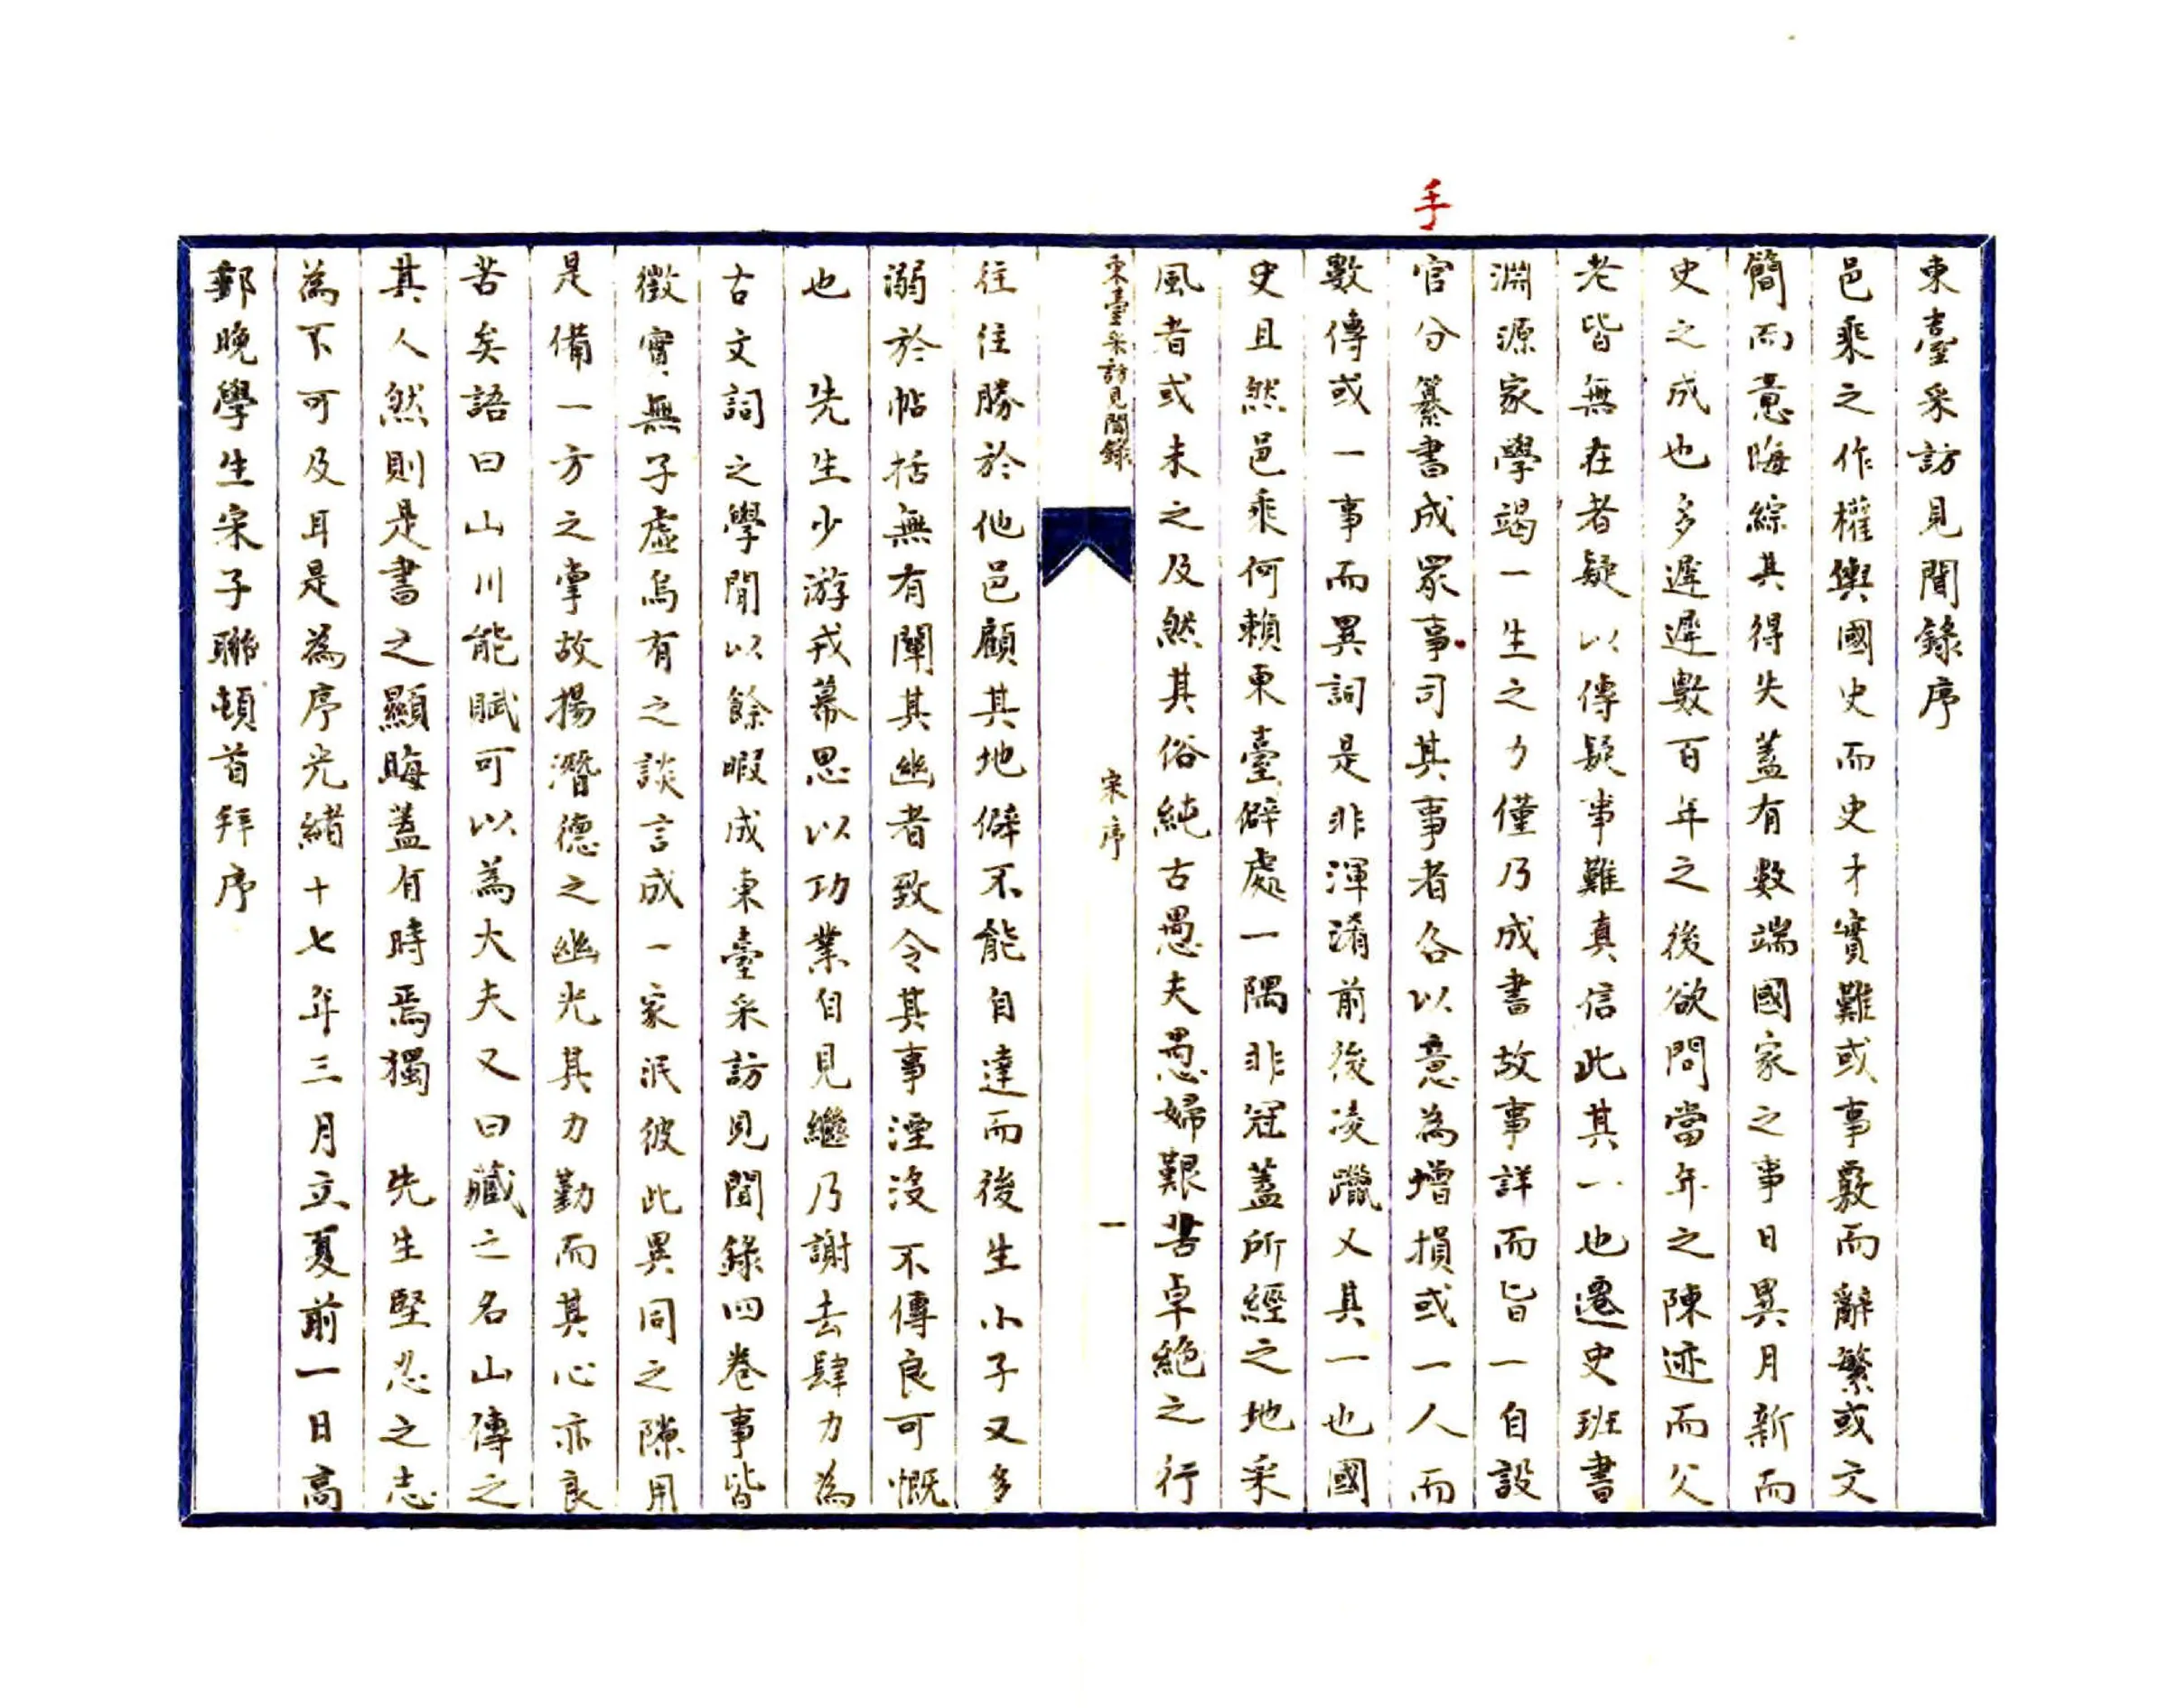 手
東臺采訪見聞錄序
邑乘之作權輿國史而史才實難或事覈而辭繁或文
簡而意晦綜其得失蓋有數端國家之事日異月新而
史之成也多遲遲數百年之後欲問當年之陳迹而父
老皆無在者疑以傳疑事難真信此其一也遷史班書
淵源家學竭一生之力僅乃成書故事詳而旨一自設
官分纂書成眾事司其事者各以意為增損或一人而
數傳或一事而異詞是非渾淆前後凌躐又其一也國
史且然邑乘何賴東臺僻處一隅非冠蓋所經之地采
風者或未之及然其俗純古愚夫愚婦艱苦卓絕之行
東臺采訪見聞錄
宋序
一
往往勝於他邑顧其地僻不能自達而後生小子又多
溺於帖括無有闡其幽者致令其事湮沒不傳良可慨
也 先生少游戎幕思以功業自見繼乃謝去肆力為
古文詞之學閒以餘暇成東臺采訪見聞錄四卷事皆
徵實無子虛烏有之談言成一家泯彼此異同之隙用
是備一方之掌故揚潛德之幽光其力勤而其心亦良
苦矣語曰山川能賦可以為大夫又曰藏之名山傳之
其人然則是書之顯晦蓋有時焉獨 先生堅忍之志
為不可及耳是為序光緒十七年三月立夏前一日高
郵晚學生宋子聯頓首拜序